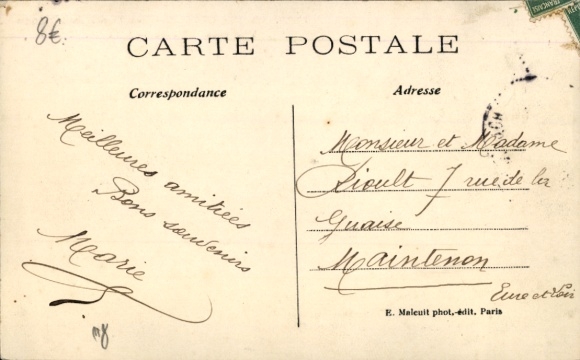 8€
CARTE POSTALE
Correspondance
Adresse
Meilleures amitiées
Bons souvenirs
Marie
Monsieur et Madame
Dioult 7 rue de la
Guaise
Maintenon
Eure et Loir
E. Maleuit phot.-édit. Paris